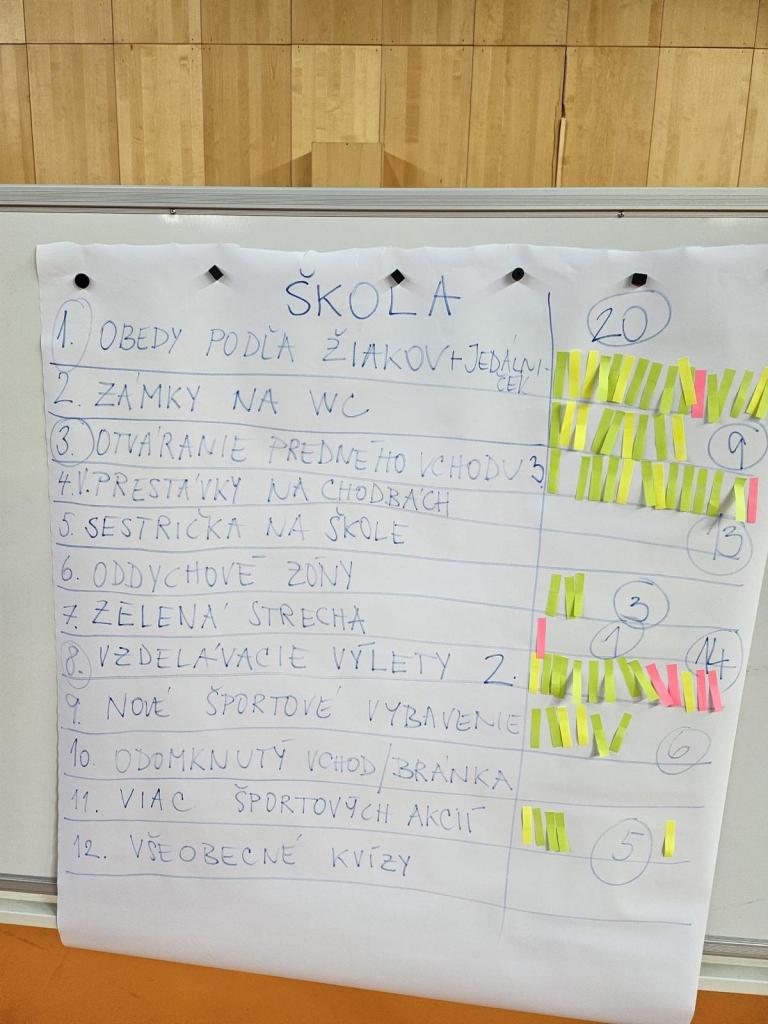 ŠKOLA
20
1. OBEDY PODĽA ŽIAKOV + JEDÁLNI-
ČEK
2. ZÁMKY NA WC
9
3. OTVÁRANIE PREDNÉHO VCHODU 3
13
4. V. PRESTÁVKY NA CHODBÁCH
5. SESTRIČKA NA ŠKOLE
6. ODDYCHOVÉ ZÓNY
3
7. ZELENÁ STRECHA
1
8. VZDELÁVACIE VÝLETY 2.
14
9. NOVÉ ŠPORTOVÉ VYBAVENIE
6
10. ODOMKNUTÝ VCHOD/BRÁNKA
11. VIAC ŠPORTOVÝCH AKCIÍ
5
12. VŠEOBECNÉ KVÍZY